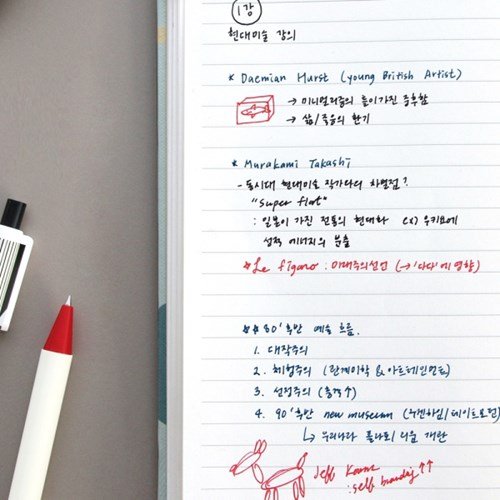 1강
현대미술 강의
* Daemian Hurst (young British Artist)
→ 미니멀리즘의 틀이 가진 중후함
→ 삶/죽음의 환기
* Murakami Takashi
- 동시대 현대미술 작가다의 차별점?
"Super flat"
: 일본이 가진 전통의 현대화 ex) 우키요에
성적 에너지의 분출
*Le figaro : 미래주의선언 (→'다다'에 영향)
** 80' 후반 예술 흐름.
1. 대작주의
2. 체험주의 (관계미학 & 아트테인먼트)
3. 선정주의 (충격↑)
4. 90' 후반 new museum (구겐하임/테이트모던)
↳ 우리나라 리움 개관
Jeff Koons
: self branding ↑↑